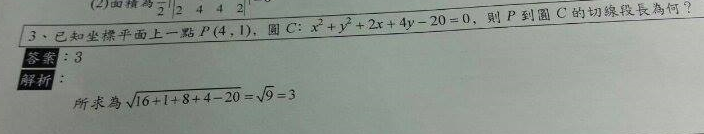 (2)面積為 1/2 |2 4 4 2|
3、已知坐標平面上一點 P(4,1),圓 C:x²+y²+2x+4y−20=0,則 P 到圓 C 的切線段長為何?
答案:3
解析:
所求為 √16+1+8+4−20 = √9 = 3